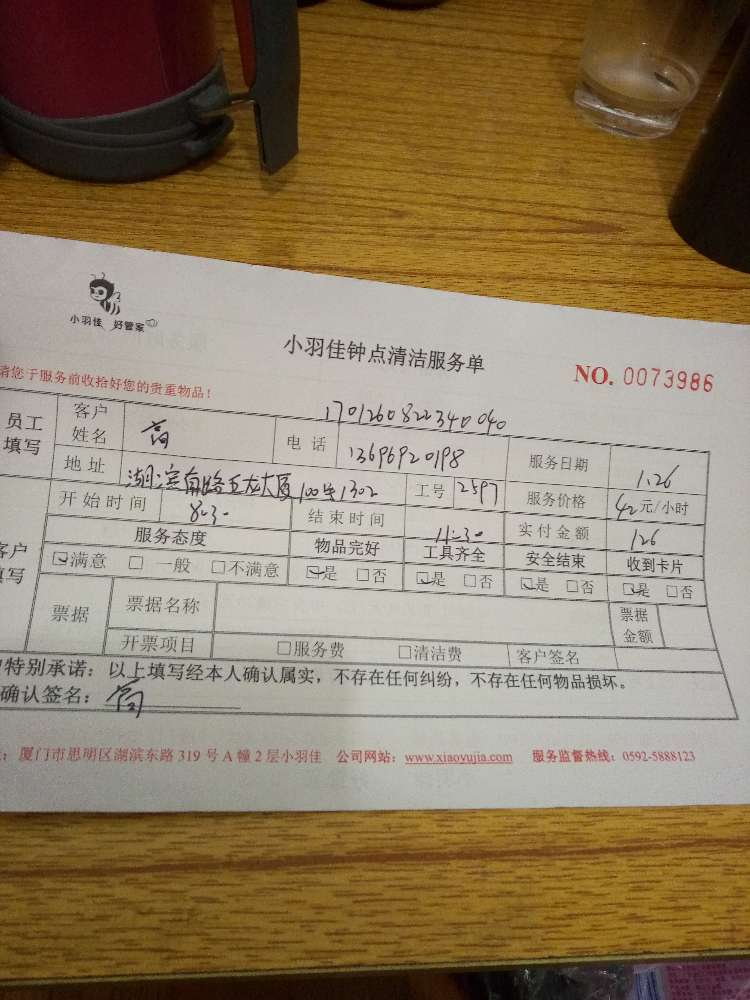 小羽佳 好管家
小羽佳钟点清洁服务单
NO. 0073986
请您于服务前收拾好您的贵重物品！
1701260822340040
员工填写 客户姓名 电话 13696920198 服务日期 1.26
地址 湖滨南路五龙大厦100号1302 工号 2597 服务价格 42元/小时
开始时间 8:30 结束时间 11:30 实付金额 126
客户填写 服务态度 物品完好 工具齐全 安全结束 收到卡片
满意 一般 不满意 是 否 是 否 是 否 是 否
票据 票据名称 票据金额
开票项目 服务费 清洁费 客户签名
特别承诺：以上填写经本人确认属实，不存在任何纠纷，不存在任何物品损坏。
确认签名：
厦门市思明区湖滨东路319号A幢2层小羽佳 公司网站：www.xiaoyujia.com 服务监督热线：0592-5888123